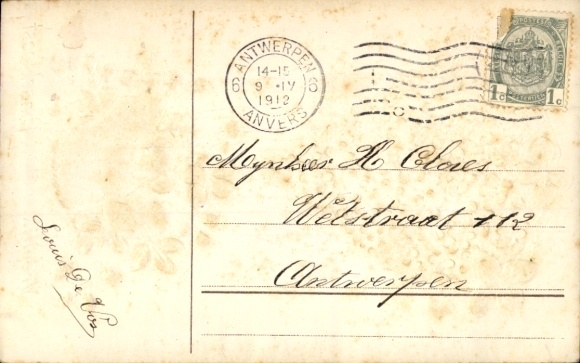 6 ANTWERPEN 6
14-15
9 IV
1912
ANVERS
1c 1c
Mynheer H
Wetstraat 112
Antwerpen
Louis De Vos